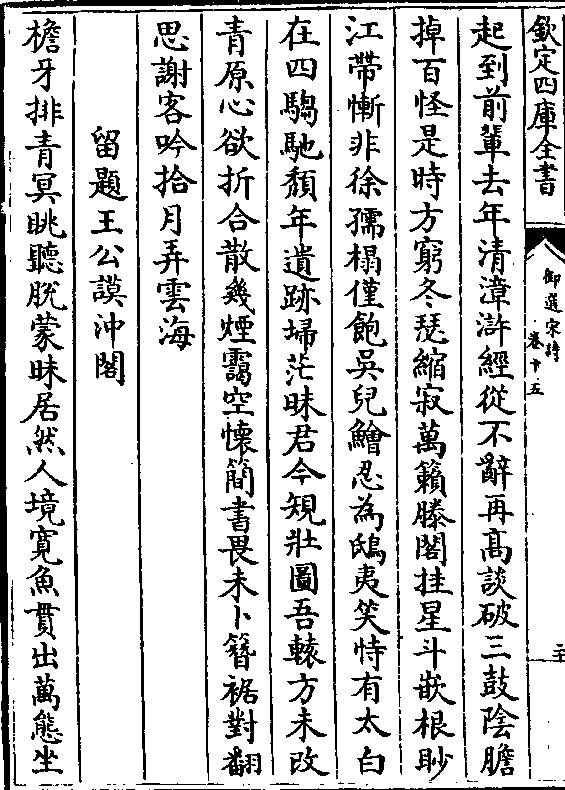 欽定四庫全書
御選宋詩
卷十五
起到前輩去年清漳滸經從不辭再高談破三鼓陰膽
掉百怪是時方窮冬瑟縮寂萬籟滕閣挂星斗嵌根眇
江帶慚非徐孺榻僅飽吳兒鱠忍為鴟夷笑恃有太白
在四騶馳頽年遺跡埽茫昧君今規壯圖吾轅方未改
青原心欲折合散幾煙靄空懷簡書畏未卜簪裾對翻
思謝客吟拾月弄雲海
留題王公謨沖閣
檐牙排青冥眺聽脫蒙昧居然人境寛魚貫出萬態坐